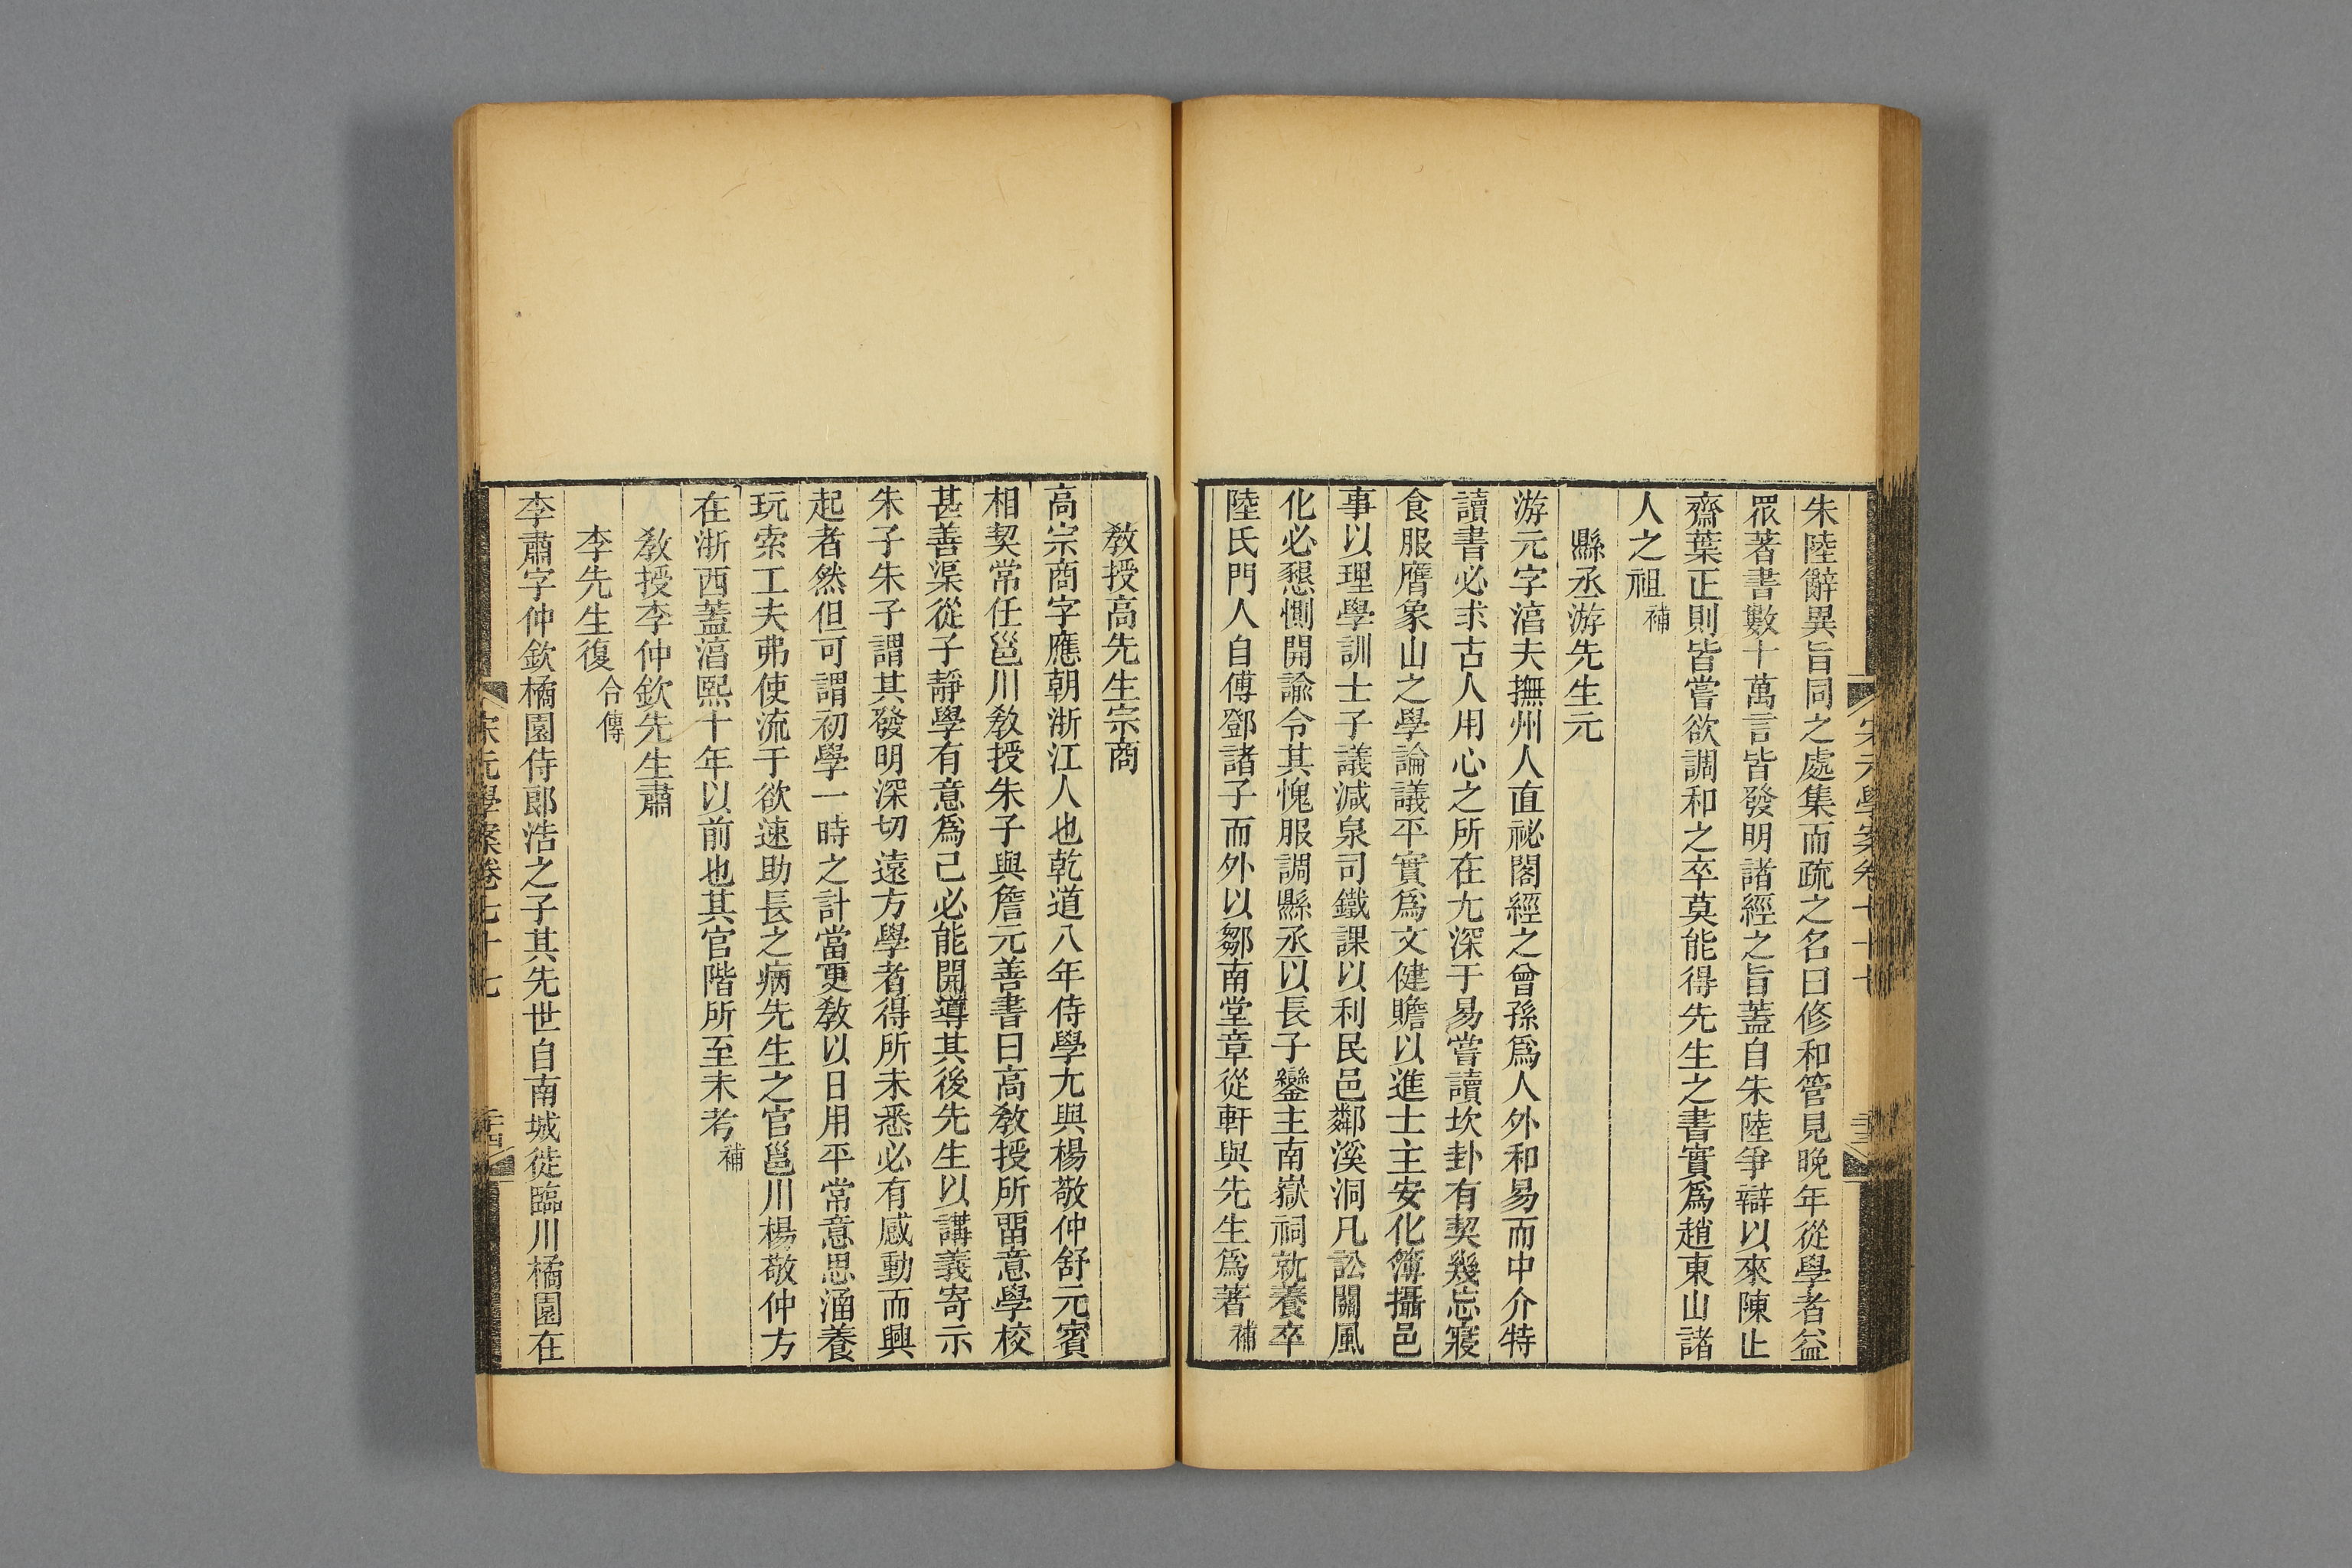 朱陸辭異旨同之處集而疏之名曰修和管見晚年從學者益
眾著書數十萬言皆發明諸經之旨蓋自朱陸爭辯以來陳止
齋葉正則皆嘗欲調和之卒莫能得先生之書實爲趙東山諸
人之祖補
縣丞游先生元
游元字淳夫撫州人直祕閣經之曾孫爲人外和易而中介特
讀書必求古人用心之所在尤深于易嘗讀坎卦有契幾忘寢
食服膺象山之學論議平實爲文健贍以進士主安化簿攝邑
事以理學訓士子議減泉司鐵課以利民邑鄰溪洞凡訟關風
化必懇惻開諭令其愧服調縣丞以長子鑾主南嶽祠就養卒
陸氏門人自傅鄧諸子而外以鄒南堂章從軒與先生爲著補
教授高先生宗商
高宗商字應朝浙江人也乾道八年侍學尤與楊敬仲舒元賓
相契常任邕川教授朱子與詹元善書曰高教授所畱意學校
甚善渠從子靜學有意爲己必能開導其後先生以講義寄示
朱子朱子謂其發明深切遠方學者得所未悉必有感動而興
起者然但可謂初學一時之計當更教以日用平常意思涵養
玩索工夫弗使流于欲速助長之病先生之官邕川楊敬仲方
在浙西蓋淳熙十年以前也其官階所至未考補
教授李仲欽先生肅
李先生復合傳
李肅字仲欽橘園侍郎浩之子其先世自南城徙臨川橘園在
宋元學案卷七十七